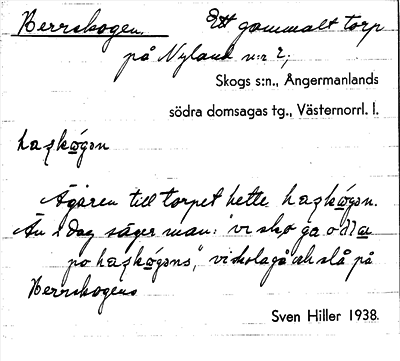 Herrskogen. Ett gammalt torp
på Nyland n:r 2,
Skogs s:n., Ångermanlands
södra domsagas tg., Västernorrl. l.
haʂkógən
Ägaren till torpet hette haʂkógən.
Än i dag säger man: "vi ska ga o
po haʂkógəns", vi skola gå och slå på
Herrskogens
Sven Hiller 1938.